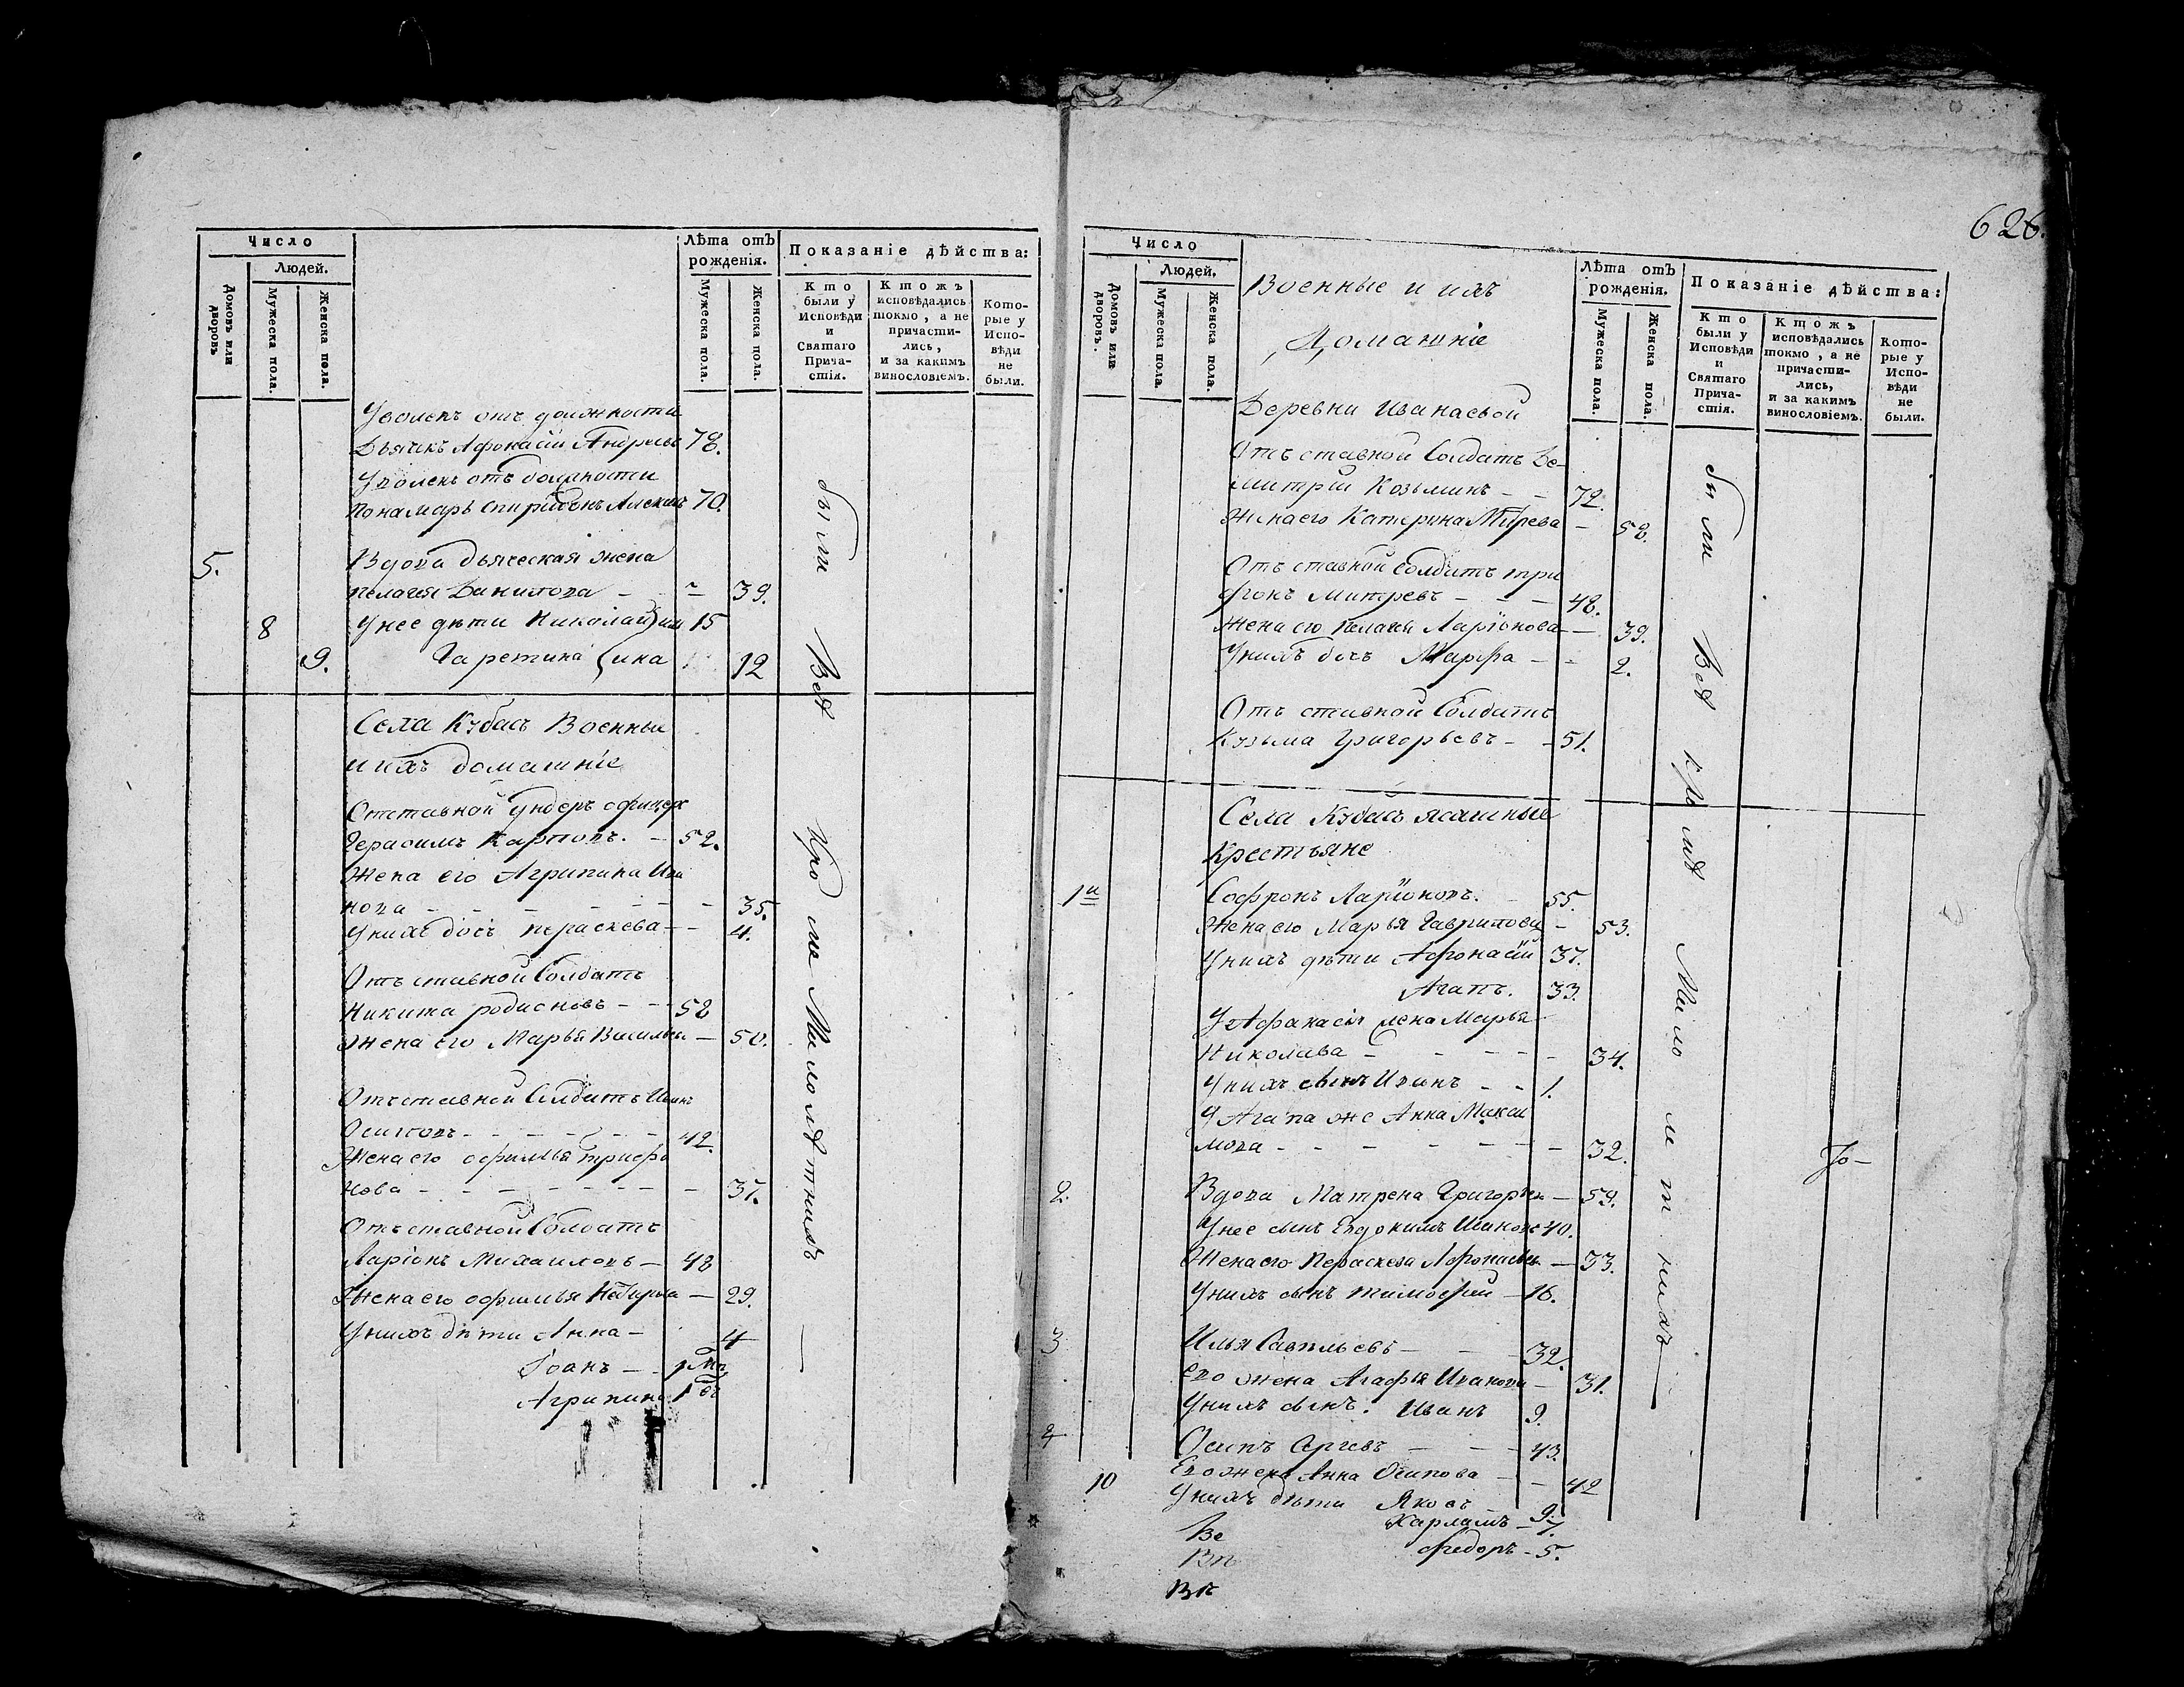 Число
Людей.
Домовъ или дворовъ
Мужеска пола.
Женска пола.
Лѣта отъ рожденія.
Мужеска пола.
Женска пола.
Показаніе дѣйства:
Кто были у Исповѣди и Святаго Прича-стія.
Ктожъ исповѣдались токмо, а не причасти-лись, и за какимъ винословіемъ.
Кото-рые у Испо-вѣди не были.
Уволенъ отъ должности
Дьячекъ Афонасіи Андреевъ 78.
Уволенъ отъ должности
Понамарь Спиридонъ Алексѣевъ 70.
5. Вдова дьяческая жена
пелагея Данилова - - 39.
8 У нее дѣти Николай 15
9. 12
были Всѣ Кроме Малолѣтнихъ —
Села Кубасъ Военныя
и ихъ домашніе
Отставной Ундеръ офицеръ
Герасимъ Карповъ. - 52.
Жена его Агрипина Ива
нова - - - - - - 35.
У нихъ дочь пераскева - - 4.
Отъставной Солдатъ
Никита родионовъ - - 52
Жена его Марья Васильева - 50.
Отъставной Солдатъ Иванъ
Осиповъ - - - - - - 42.
Жена его офимья Трифо
нова - - - - - - - - 37.
Отъставной Солдатъ
Ларіонъ Михаиловъ - 48
Жена его офимья - 29.
У нихъ дѣти Анна - 4
Іоанъ - - 1
Агрипина 1
626.
Число
Людей,
Домовъ или дворовъ.
Мужеска пола.
Женска пола.
Военные и ихъ
Домашніе
Лѣта отъ рожденія.
Мужеска пола.
Женска пола.
Показаніе дѣйства:
Кто были у Исповѣди и Святаго Прича-стія.
Ктожъ исповѣдались токмо, а не причасти-лись, и за какимъ винословіемъ.
Кото-рые у Испо-вѣди не были.
Деревни Иванаевой
Отъ ставной Солдатъ Де-
митрій Козьминъ - - 72.
Жена его Катерина - 58.
Отъ ставной Солдатъ три
фонъ Митревъ - - - 48.
Жена его Пелагея Ларіонова - 39.
У нихъ дочь Марфа - - 2.
Отъ ставной Солдатъ
Кузьма Григорьевъ - - 51.
были Всѣ кромѣ Малолѣтнихъ —
Села Кубасъ ясашныя
Крестьяне
1й Софронъ Ларіоновъ. 55.
Жена его Марья Гаврилова - 53.
У нихъ дѣти Афонасіи 37.
Агапъ. 33.
У Афанасія жена Марья
Николаева - - - - - 34.
У нихъ сынъ Иванъ - - 1.
У Агапа же Анна Макси
мова - - - - - - - 32.
2. Вдова Матрена Григорьева - 59.
У нее сынъ Евдокимъ Ивановъ 40.
Жена его Пераскева Афонасьева - 33.
У нихъ сынъ тимофеи - 16.
3 Илья Савельевъ - - - 32.
Ево жена Агафья Иванова - 31.
У нихъ сынъ. Иванъ 9.
4 Осипъ Сергевъ - - - 43.
Ево жена Анна Осипова - - 42
10 У нихъ дѣти Яковъ - 9.
Ве Харламъ - 7.
Вп Федоръ - 5.
Вп